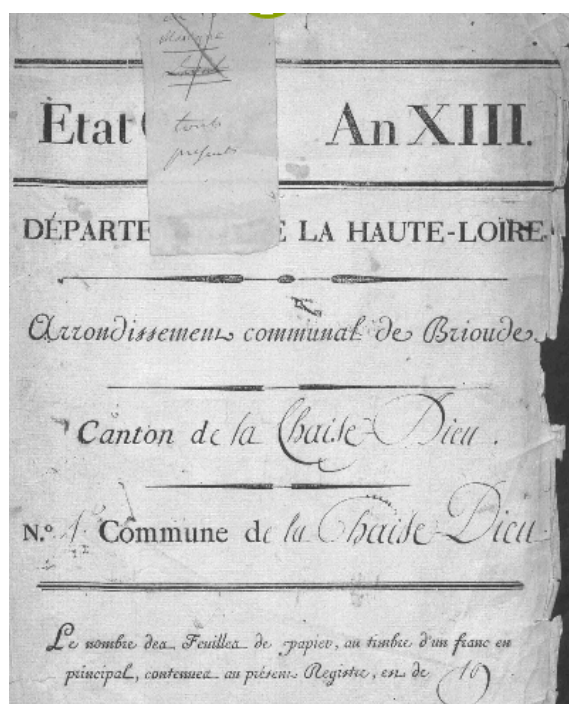 tous
présents
Etat An XIII.
DÉPARTE E LA HAUTE-LOIRE.
Arrondissement communal de Brioude.
Canton de la Chaise-Dieu.
N.º 1er Commune de la Chaise-Dieu
Le nombre des Feuilles de papier, au timbre d'un franc en
principal, contenues au présent Registre, est de 16